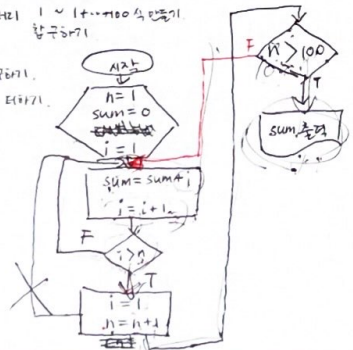 1 ~ 1+…+100 식 만들기.
합 구하기
하기.
더하기.
시작
n=1
sum=0
i=1
sum=sum+i
i=i+1
F
i>n
T
i=1
n=n+1
F
n>100
T
sum 출력